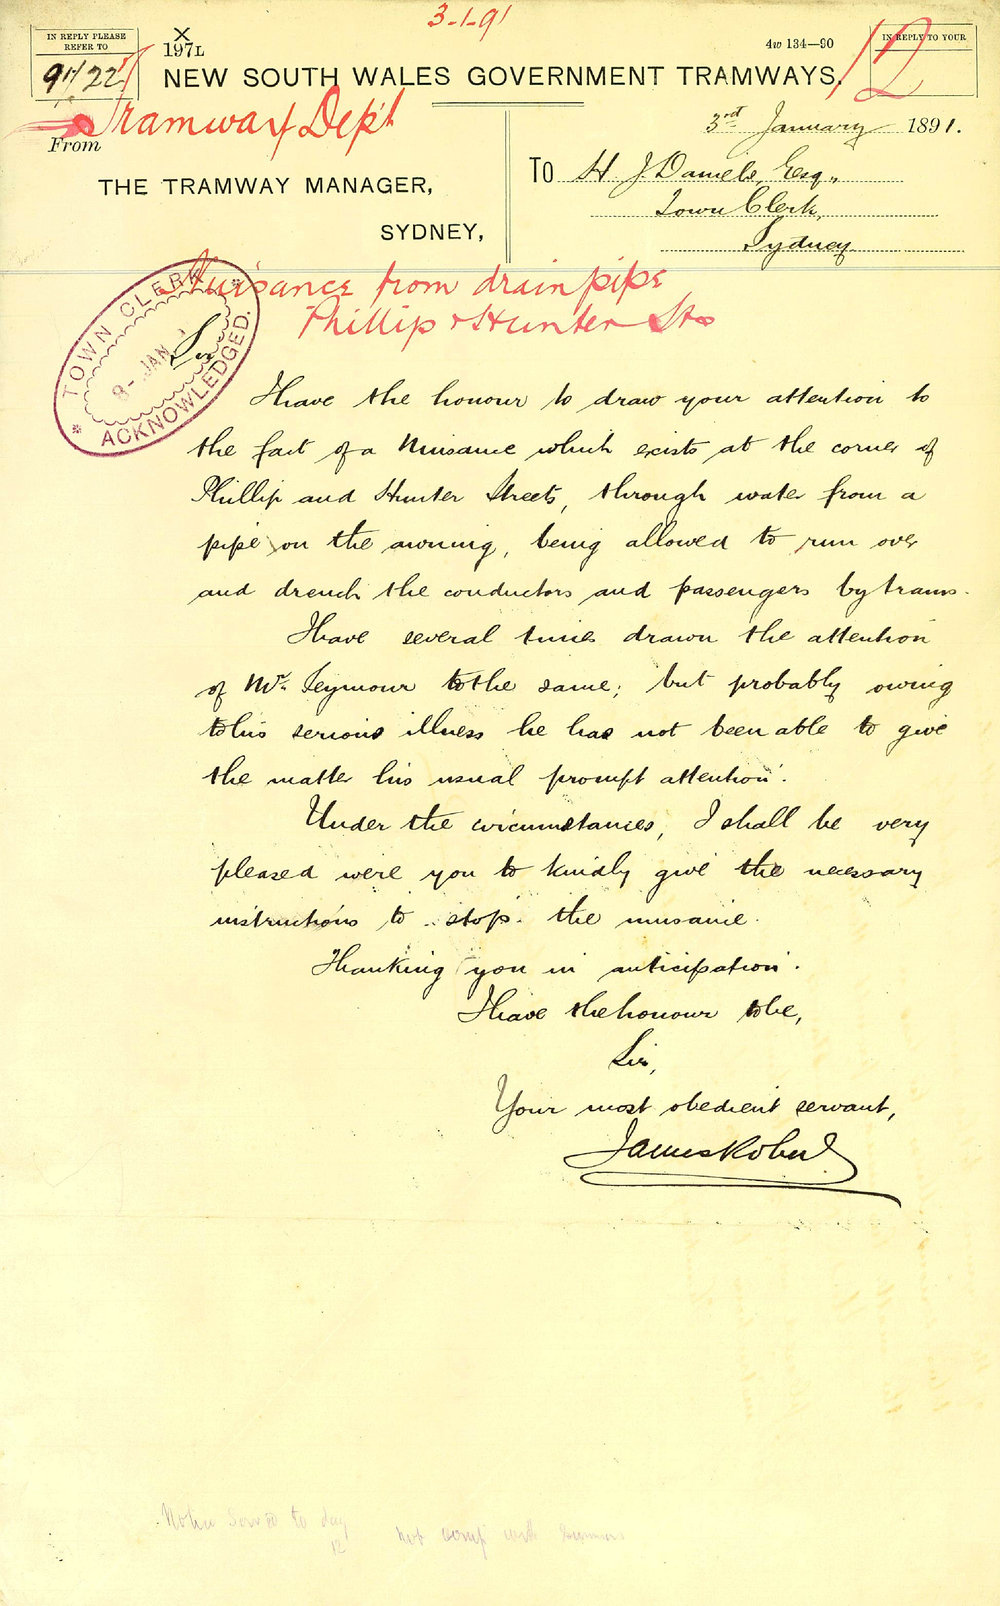 3-1-91
IN REPLY PLEASE
REFER TO
91/22
X
197L
4w 134—90
IN REPLY TO YOUR
12
NEW SOUTH WALES GOVERNMENT TRAMWAYS,
Tramway Dep't
From
THE TRAMWAY MANAGER,
SYDNEY,
3rd January 1891.
To H. J. Daniels, Esq.,
Town Clerk,
Sydney
Nuisance from drain pipe
Phillip & Hunter Sts
TOWN CLERK
8- JAN
ACKNOWLEDGED.
Sir
I have the honour to draw your attention to
the fact of a Nuisance which exists at the corner of
Phillip and Hunter Streets, through water from a
pipe on the awning, being allowed to run over
and drench the conductors and passengers by trams.
I have several times drawn the attention
of Mr. Seymour to the same; but probably owing
to his serious illness he has not been able to give
the matter his usual prompt attention.
Under the circumstances, I shall be very
pleased were you to kindly give the necessary
instructions to stop the nuisance.
Thanking you in anticipation.
I have the honour to be,
Sir,
Your most obedient servant,
James Roberts
to day
12
not comp with